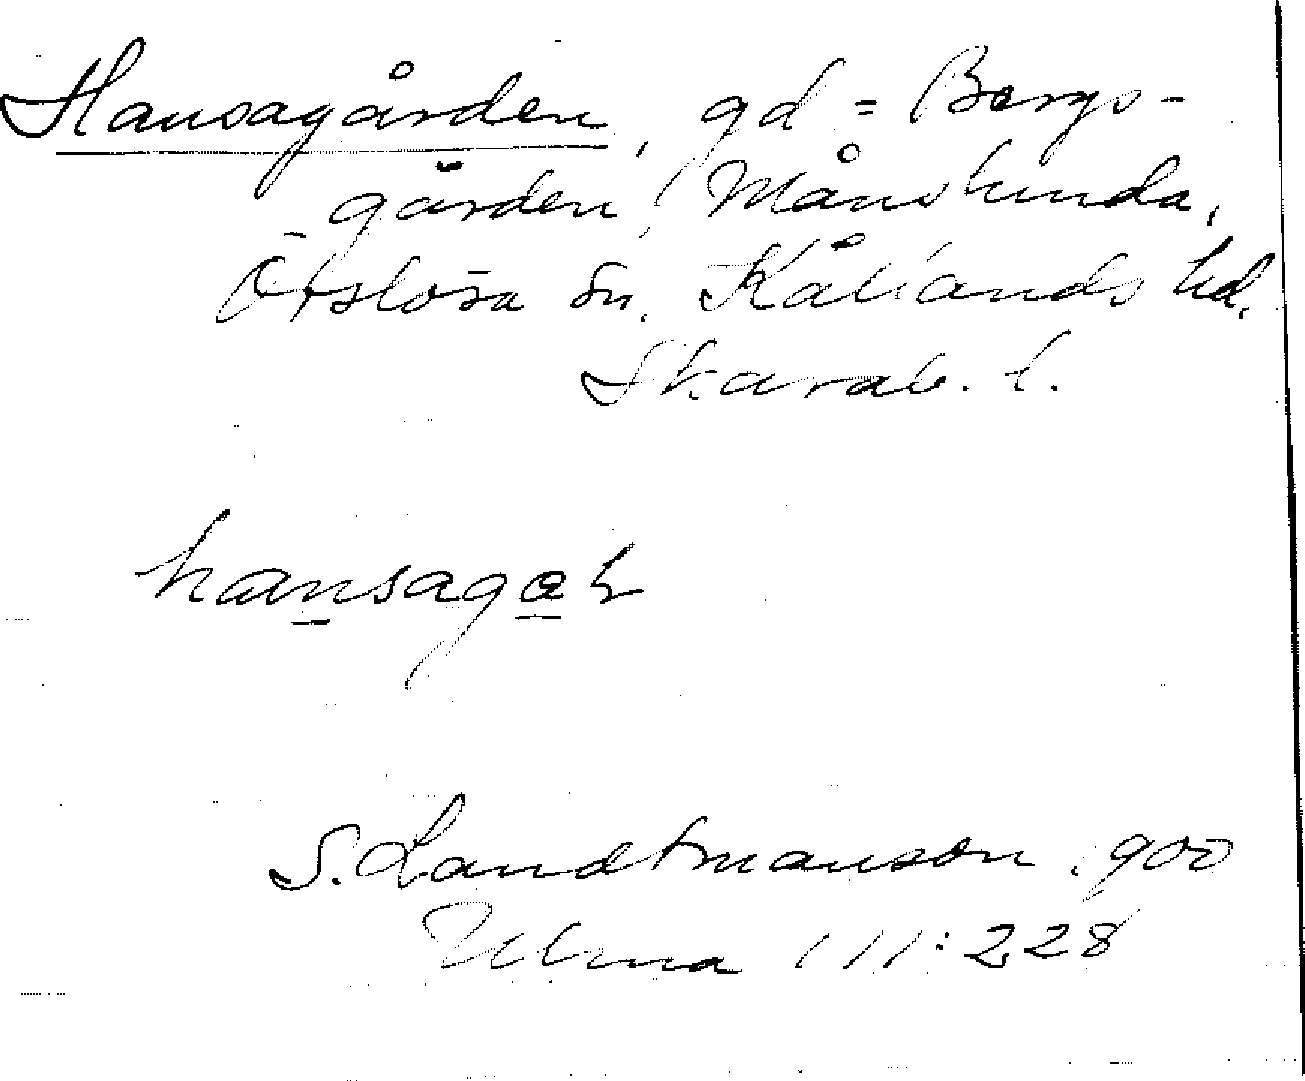 Hansagården, gd = Bergs-
gården, Månslunda,
Otslösa sn. Kållands hd.
Skarab. l.
hansagɑ
S. Landtmanson. 900
Ulma 111:228